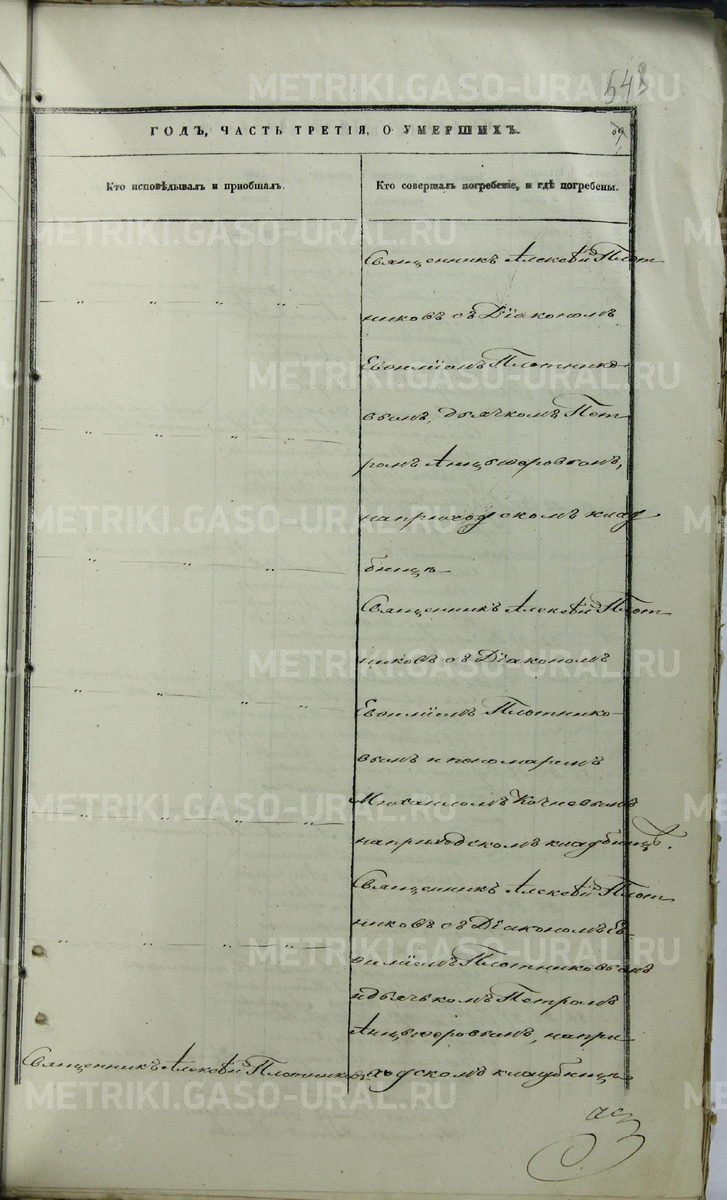 543
ГОДЪ, ЧАСТЬ ТРЕТІЯ, О УМЕРШИХЪ.
Кто исповѣдывалъ и пріобщалъ.
Кто совершалъ погребеніе, и гдѣ погребены.
Священникъ Алексѣй Плот
никовъ съ Діакономъ
Евѳиміемъ Плотнико
вымъ, дьячкомъ Пет
ромъ Анцыферовымъ,
на приходскомъ клад
бищѣ
Священникъ Алексѣй Плот
никовъ съ Діакономъ
Евѳиміемъ Плотнико
вымъ и пономаремъ
Михаиломъ Кочневымъ
на приходскомъ кладбищѣ.
Священникъ Алексѣй Плот
никовъ съ Діакономъ Ев
ѳиміемъ Плотниковымъ
и дьячькомъ Петромъ
Анцыферовымъ, на при
Священникъ Алексѣй Плотниковъ
ходскомъ кладбищѣ
METRIKI.GASO-URAL.RU